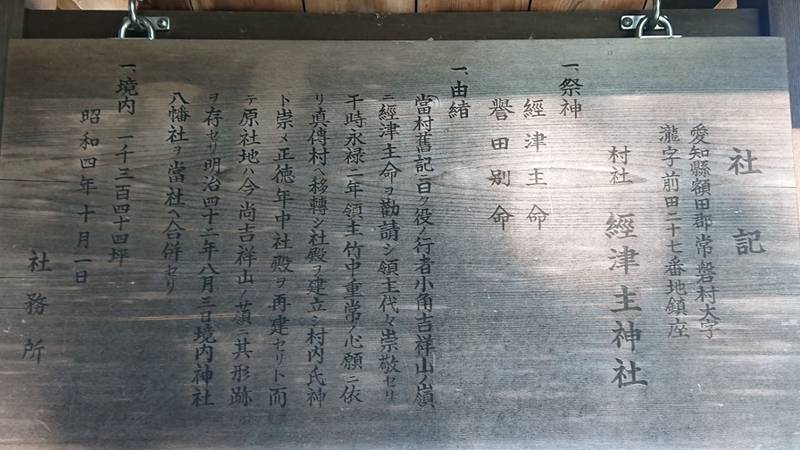 社記
愛知縣額田郡常磐村大字
瀧字前田二十七番地鎮座
村社 經津主神社
一、祭神
經津主命
譽田別命
一、由緒
當村舊記ニ曰ク役ノ行者小角吉祥山ノ嶺
ニ經津主命ヲ勸請シ領主代々崇敬セリ
干時永禄二年領主竹中重常ノ心願ニ依
リ真傳村ヘ移轉シ社殿ヲ建立シ村内氏神
ト崇メ正徳年中社殿ヲ再建セリト而
テ原社地ハ今尚吉祥山ノ嶺ニ其形跡
ヲ存セリ明治四十二年八月三日境内神社
八幡社ヲ當社ヘ合併セリ
一、境内 一千三百四十四坪
昭和四年十月一日
社務所